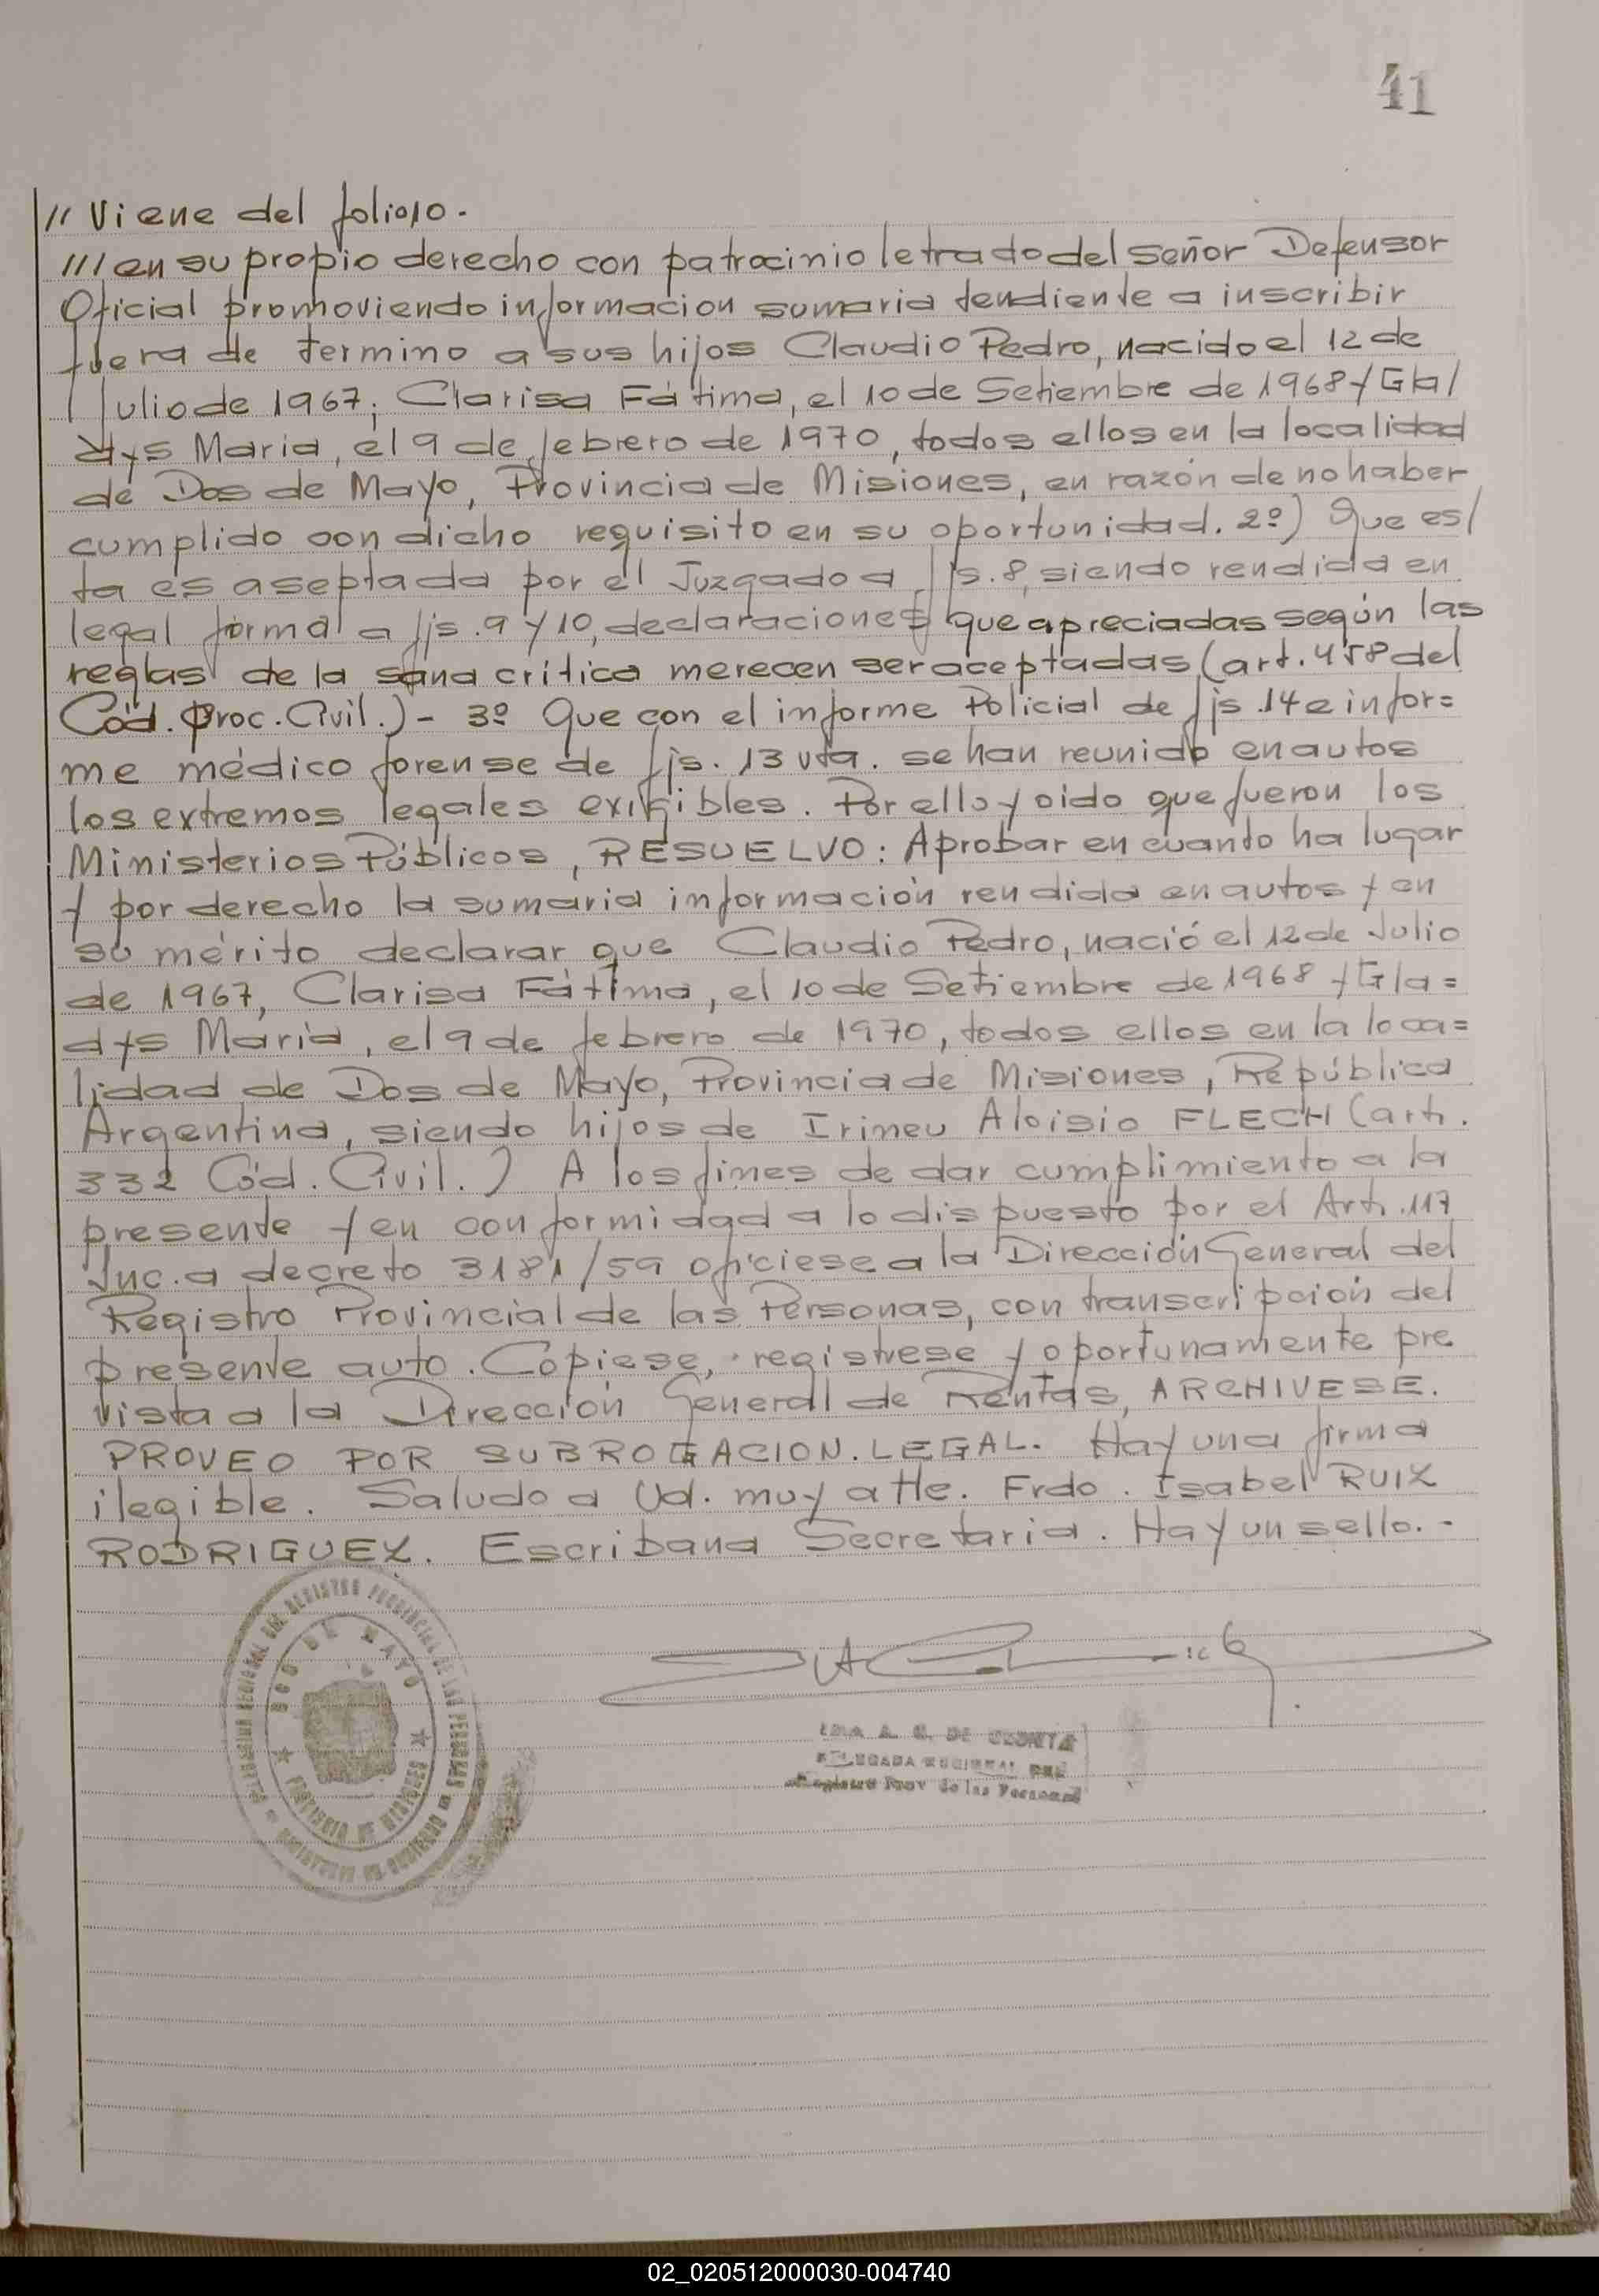 41
// Viene del folio 10.
/// en su propio derecho con patrocinio letrado del señor Defensor
Oficial promoviendo informacion sumaria tendiente a inscribir
fuera de termino a sus hijos Claudio Pedro, nacido el 12 de
Julio de 1967; Clarisa Fátima, el 10 de Setiembre de 1968 y Gla/
dys Maria, el 9 de febrero de 1970, todos ellos en la localidad
de Dos de Mayo, Provincia de Misiones, en razón de no haber
cumplido con dicho requisito en su oportunidad. 2º) Que es/
ta es aseptada por el Juzgado a fjs. 8, siendo rendida en
legal forma a fjs. 9 y 10, declaraciones que apreciadas según las
reglas de la sana crítica merecen ser aceptadas (art. 458 del
Cód. Proc. Civil.) - 3º Que con el informe Policial de fjs. 14 e infor=
me médico forense de fjs. 13 vta. se han reunido en autos
los extremos legales exigibles. Por ello y oido que fueron los
Ministerios Públicos, RESUELVO: Aprobar en cuanto ha lugar
y por derecho la sumaria información rendida en autos y en
su mérito declarar que Claudio Pedro, nació el 12 de Julio
de 1967, Clarisa Fátima, el 10 de Setiembre de 1968 y Gla=
dys Maria, el 9 de febrero de 1970, todos ellos en la loca=
lidad de Dos de Mayo, Provincia de Misiones, República
Argentina, siendo hijos de Irineu Aloisio FLECH (art.
332 Cód. Civil.) A los fines de dar cumplimiento a la
presente y en conformidad a lo dispuesto por el Art. 117
Inc. a decreto 3181/59 ofíciese a la Dirección General del
Registro Provincial de las Personas, con transcripción del
presente auto. Copiese, registrese y oportunamente pre
vista a la Dirección General de Rentas, ARCHIVESE.
PROVEO POR SUBROGACION. LEGAL. Hay una firma
ilegible. Saludo a Ud. muy atte. Frdo. Isabel RUIZ
RODRIGUEZ. Escribana Secretaria. Hay un sello. -
REGIONAL DEL REGISTRO PROVINCIAL DE LAS PERSONAS
DOS DE MAYO
PROVINCIA DE MISIONES
A. G. DE
DELEGADA REGIONAL DEL
Registro Prov de las Personas
02_020512000030-004740